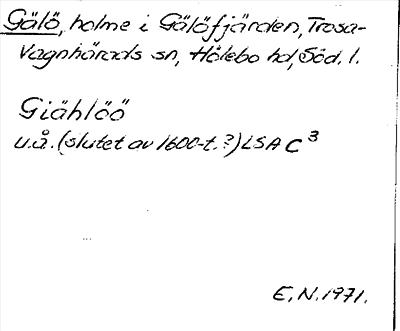 Gälö, holme i Gälöfjärden, Trosa-
Vagnhärads sn, Hölebo hd, Söd. l.
Giählöö
u.å. (slutet av 1600-t.?) LSA C³
E.N. 1971.